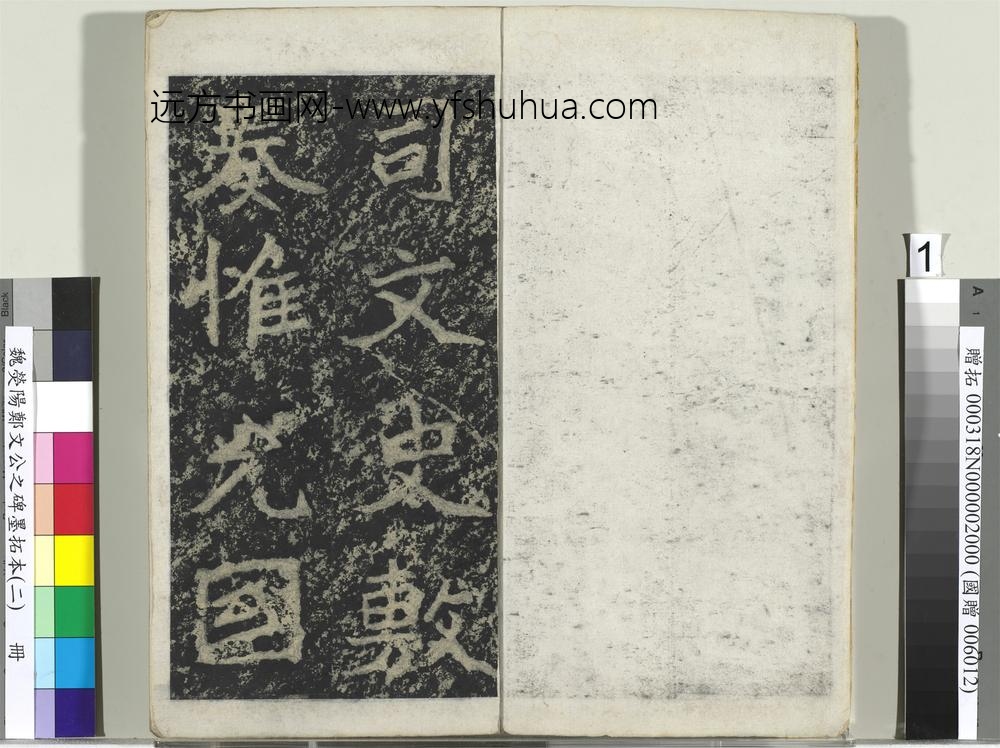 远方书画网-www.yfshuhua.com
司文史敷
奏惟允國
魏滎陽鄭文公之碑墨拓本(二) 冊
贈拓 000318N000002000 (國贈 006012)
1
A
1
Black